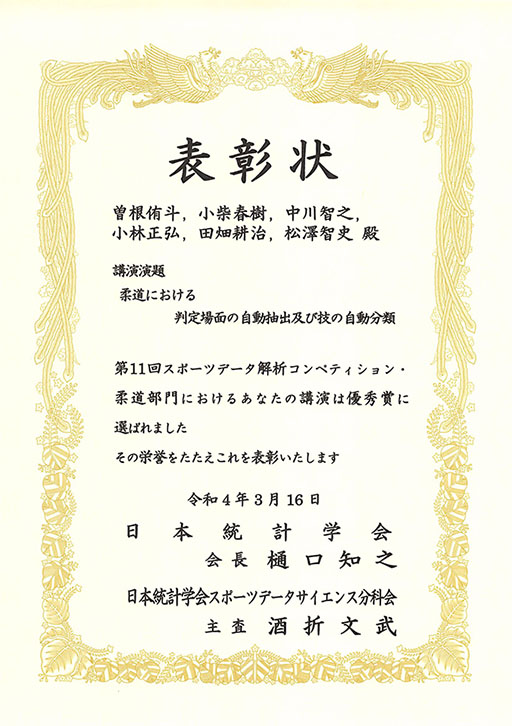 表彰状
曽根侑斗，小柴春樹，中川智之，
小林正弘，田畑耕治，松澤智史 殿
講演演題
柔道における
判定場面の自動抽出及び技の自動分類
第11回スポーツデータ解析コンペティション・
柔道部門におけるあなたの講演は優秀賞に
選ばれました
その栄誉をたたえこれを表彰いたします
令和4年3月16日
日本統計学会
会長 樋口知之
日本統計学会スポーツデータサイエンス分科会
主査 酒折文武